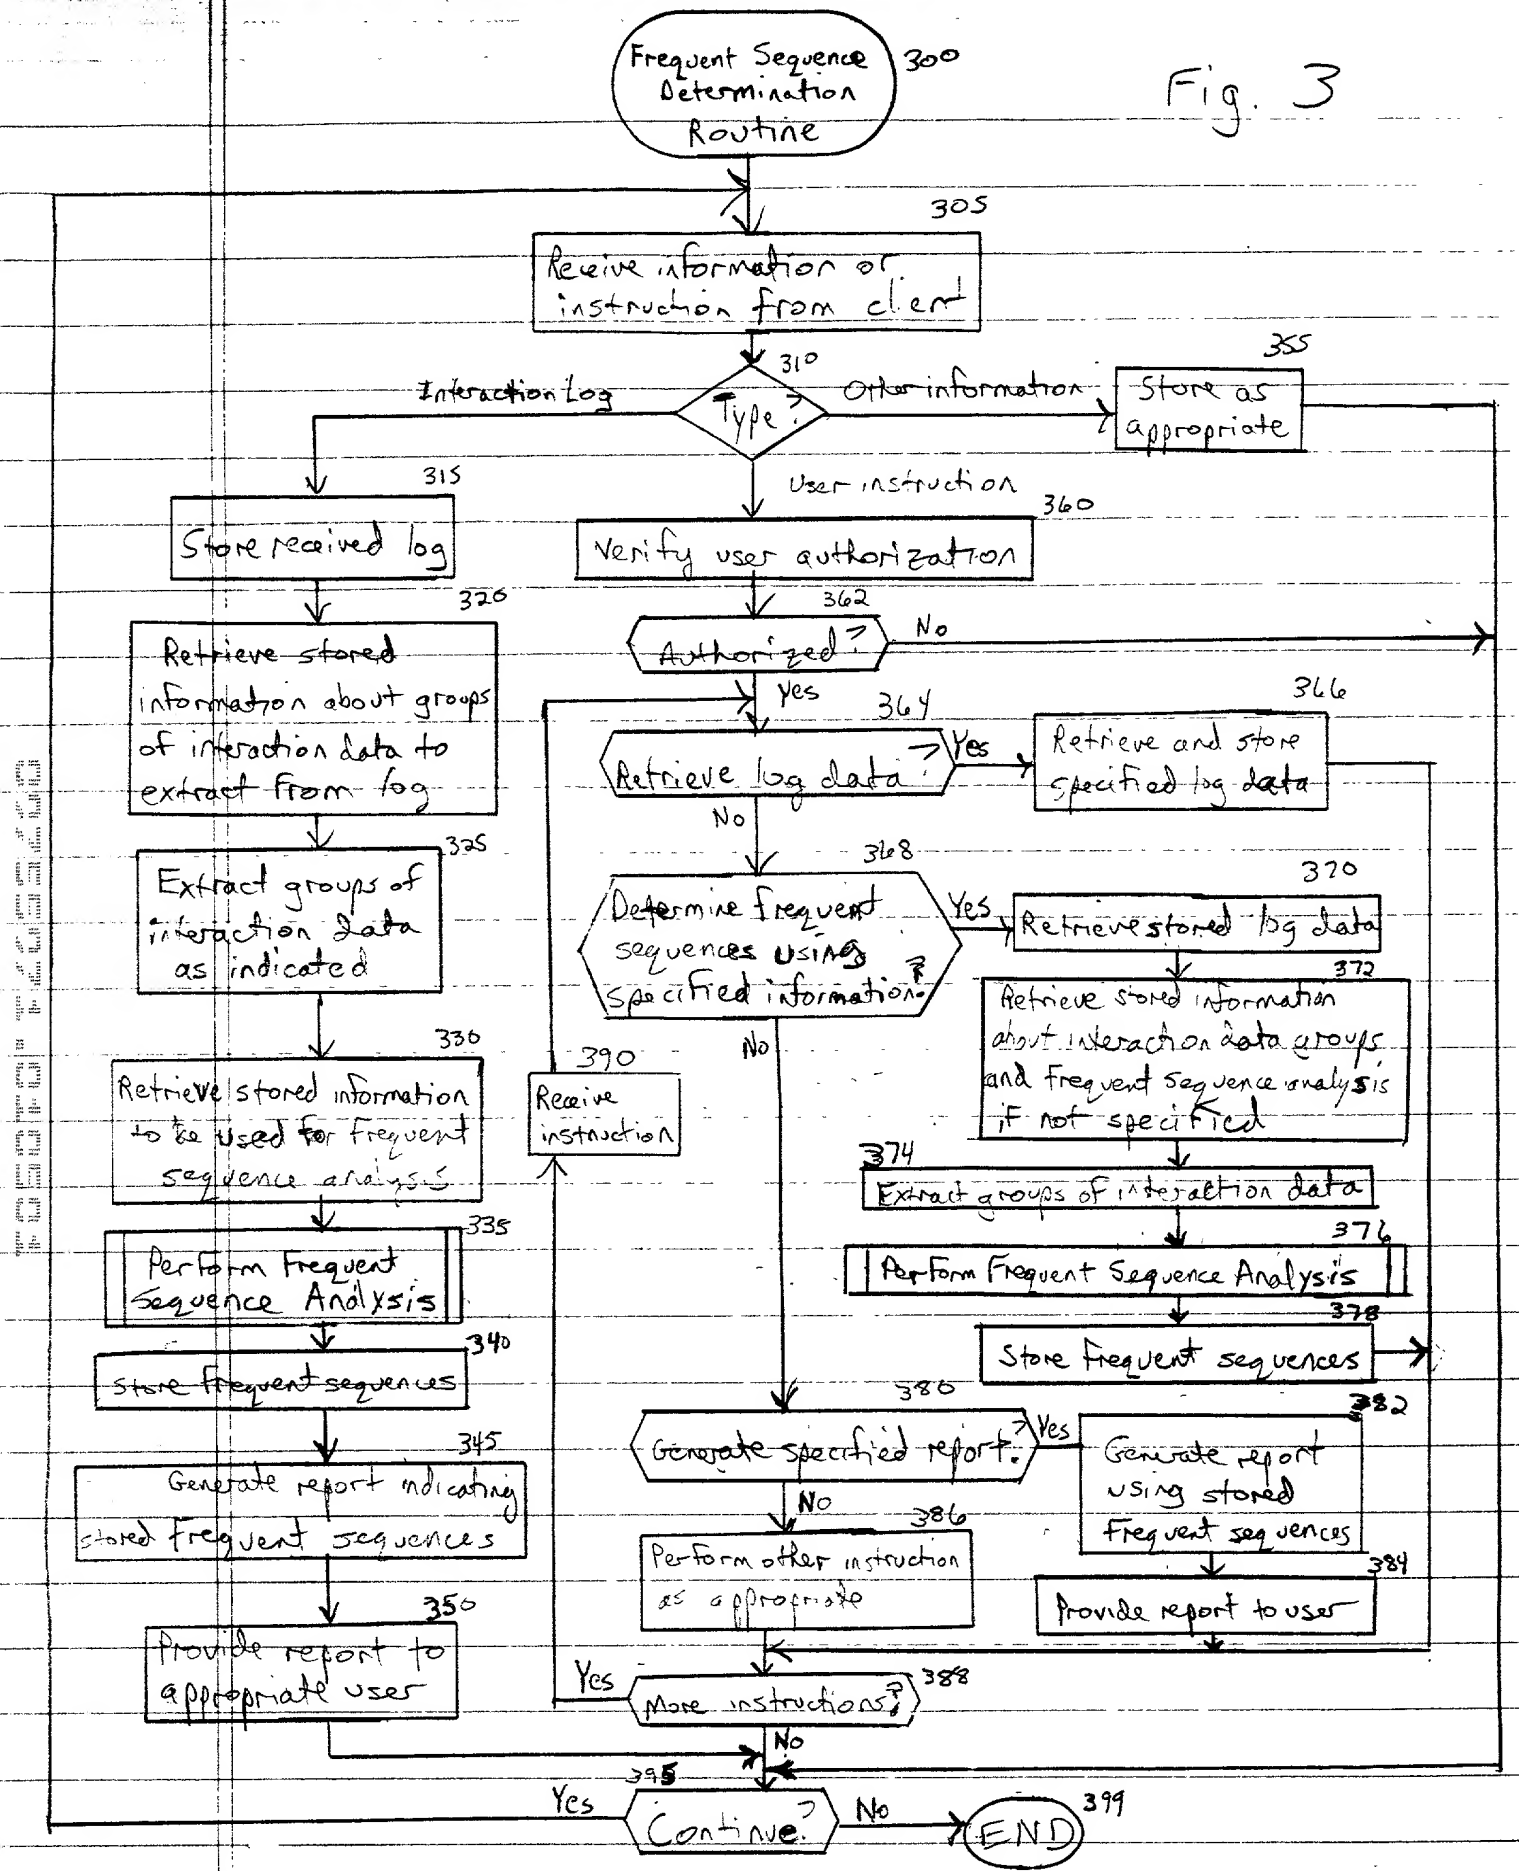 Fig. 3
Frequent Sequence
Determination
Routine
300
305
Receive information or
instruction from client
310
Type?
Interaction Log
Other information
User instruction
355
Store as
appropriate
315
Store received log
320
Retrieve stored
information about groups
of interaction data to
extract from log
325
Extract groups of
interaction data
as indicated
330
Retrieve stored information
to be used for frequent
sequence analysis
335
Perform Frequent
Sequence Analysis
340
Store frequent sequences
345
Generate report indicating
stored frequent sequences
350
Provide report to
appropriate user
360
Verify user authorization
362
Authorized?
No
Yes
364
Retrieve log data?
Yes
No
366
Retrieve and store
specified log data
368
Determine frequent
sequences using
specified information?
Yes
No
370
Retrieve stored log data
372
Retrieve stored information
about interaction data groups
and frequent sequence analysis
if not specified
374
Extract groups of interaction data
376
Perform Frequent Sequence Analysis
378
Store frequent sequences
380
Generate specified report?
Yes
No
382
Generate report
using stored
frequent sequences
384
Provide report to user
386
Perform other instruction
as appropriate
388
More instructions?
Yes
No
390
Receive
instruction
395
Continue?
Yes
No
399
END